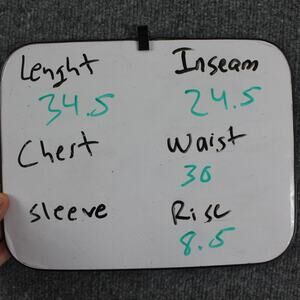 Lenght Inseam
34.5 24.5
Chest Waist
30
sleeve Rise
8.5